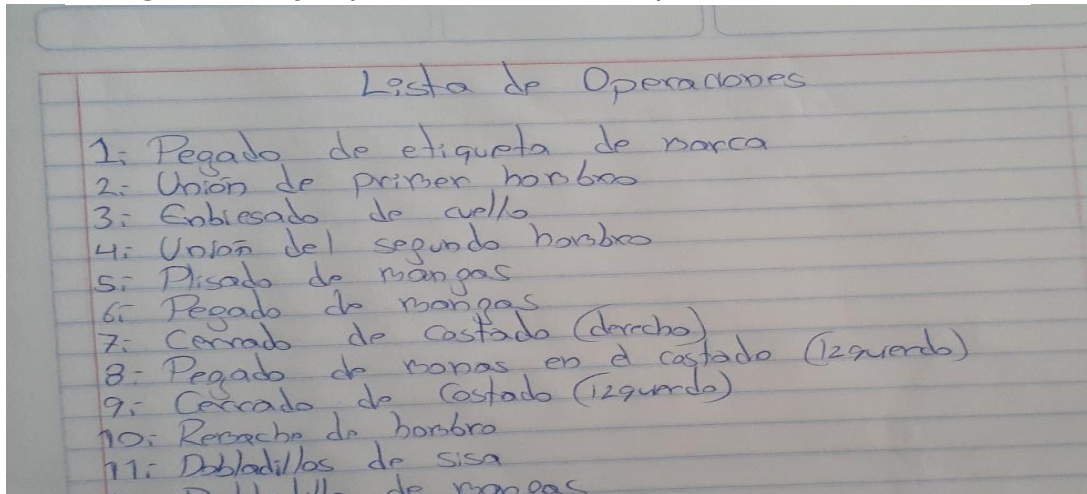 Lista de Operaciones
1: Pegado de etiqueta de marca
2: Unión de primer hombro
3: Enbiesado de cuello
4: Unión del segundo hombro
5: Plisado de mangas
6: Pegado de mangas
7: Cerrado de costado (derecho)
8: Pegado de en el costado (izquierdo)
9: Cerrado de Costado (izquerdo)
10: Remache de hombro
11: Dobladillos de sisa
de mangas